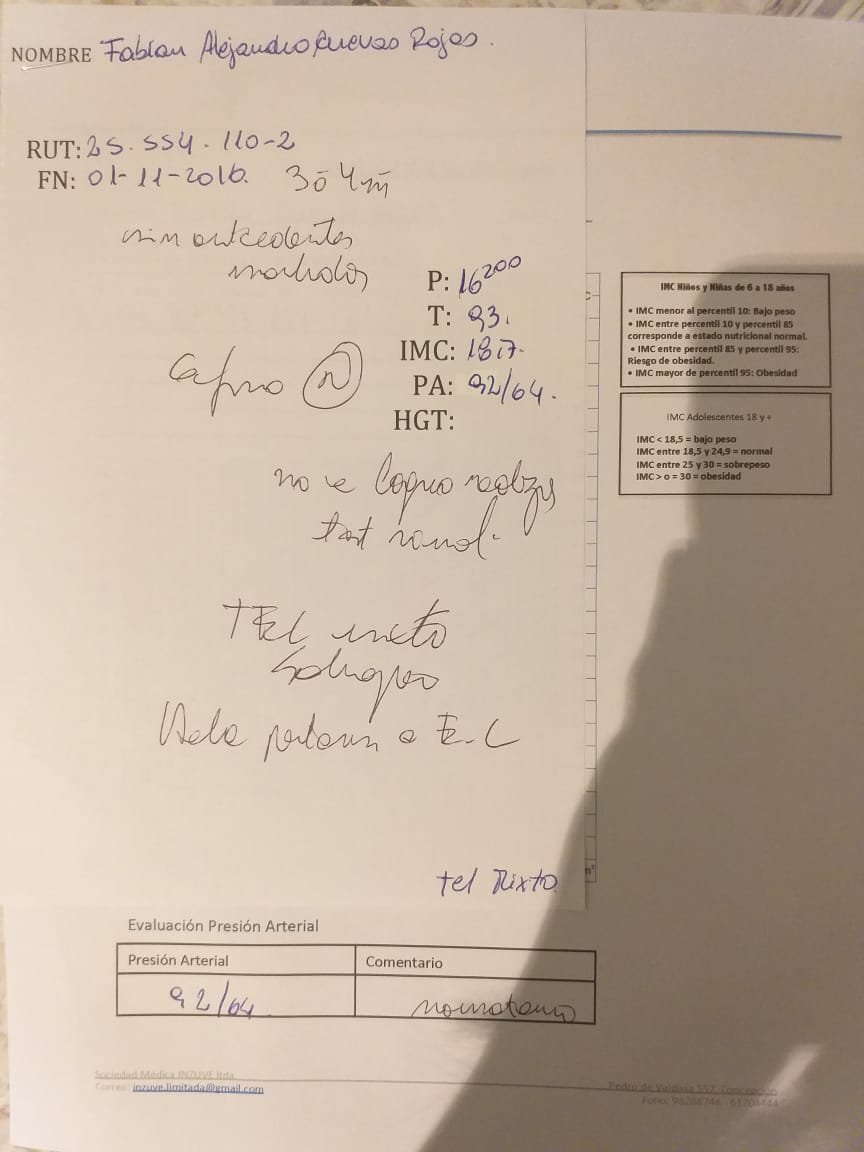 NOMBRE Fabian Alejandro Cuevas Rojas.
RUT: 25.554.110-2
FN: 01-11-2016. 3ā 4m̄
sin antecedentes
morbidos
P: 16²⁰⁰
T: 93.
IMC: 18.7.
PA: 92/64.
HGT:
no se logra realizar
TEL mixto
a E.C
tel Mixto.
IMC Niños y Niñas de 6 a 18 años
• IMC menor al percentil 10: Bajo peso
• IMC entre percentil 10 y percentil 85
corresponde a estado nutricional normal.
• IMC entre percentil 85 y percentil 95:
Riesgo de obesidad.
• IMC mayor de percentil 95: Obesidad
IMC Adolescentes 18 y+
IMC < 18,5 = bajo peso
IMC entre 18,5 y 24,9 = normal
IMC entre 25 y 30 = sobrepeso
IMC > o = 30 = obesidad
Evaluación Presión Arterial
Presión Arterial Comentario
92/64
Sociedad Médica INZUVE ltda
Correo: inzuve.limitada@gmail.com
Pedro de Valdivia 557, Concepción